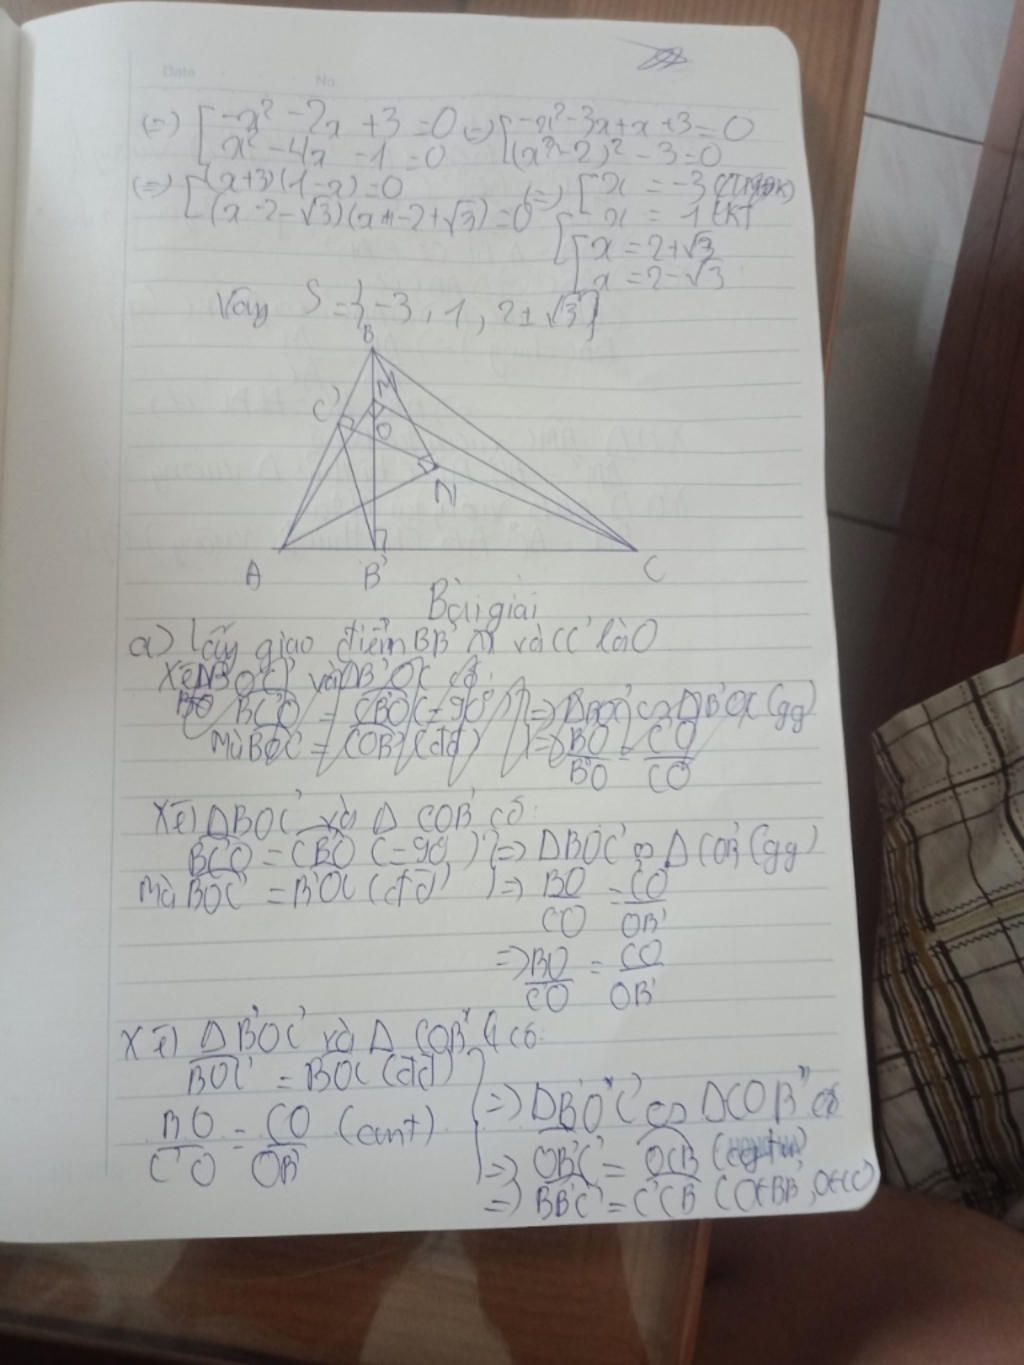 Date No
(=) [-x² - 2x + 3 = 0 (=) [-x² - 3x + x + 3 = 0
x² - 4x - 1 = 0 (x - 2)² - 3 = 0
(=) [(x+3)(1-x) = 0 (=) [x = -3
[(x - 2 - √3)(x - 2 + √3) = 0 x = 1
[x = 2 + √3
x = 2 - √3
Vậy S = {-3, 1, 2 ± √3}
B
M
C'
O
N
A B' C
Bài giải
a) Lấy giao điểm BB' và CC' là O
Xét ΔBOC' và ΔB'OC
BC'O = CB'O (= 90°) => ΔBOC' ∽ ΔB'OC (gg)
Mà BOC' = COB' (đđ) => BO/B'O = C'O/CO
Xét ΔBOC' và ΔCOB' có:
BC'O = CB'O (= 90°) => ΔBOC' ∽ ΔCOB' (gg)
Mà BOC' = B'OC (đđ) => BO/CO = C'O/OB'
=> BO/C'O = CO/OB'
Xét ΔB'OC' và ΔCOB có:
B'OC' = BOC (đđ)
BO/C'O = CO/OB' (cmt) => ΔB'OC' ∽ ΔCOB
=> OB'C' = OCB
=> BB'C' = C'CB (O∈BB', O∈CC')